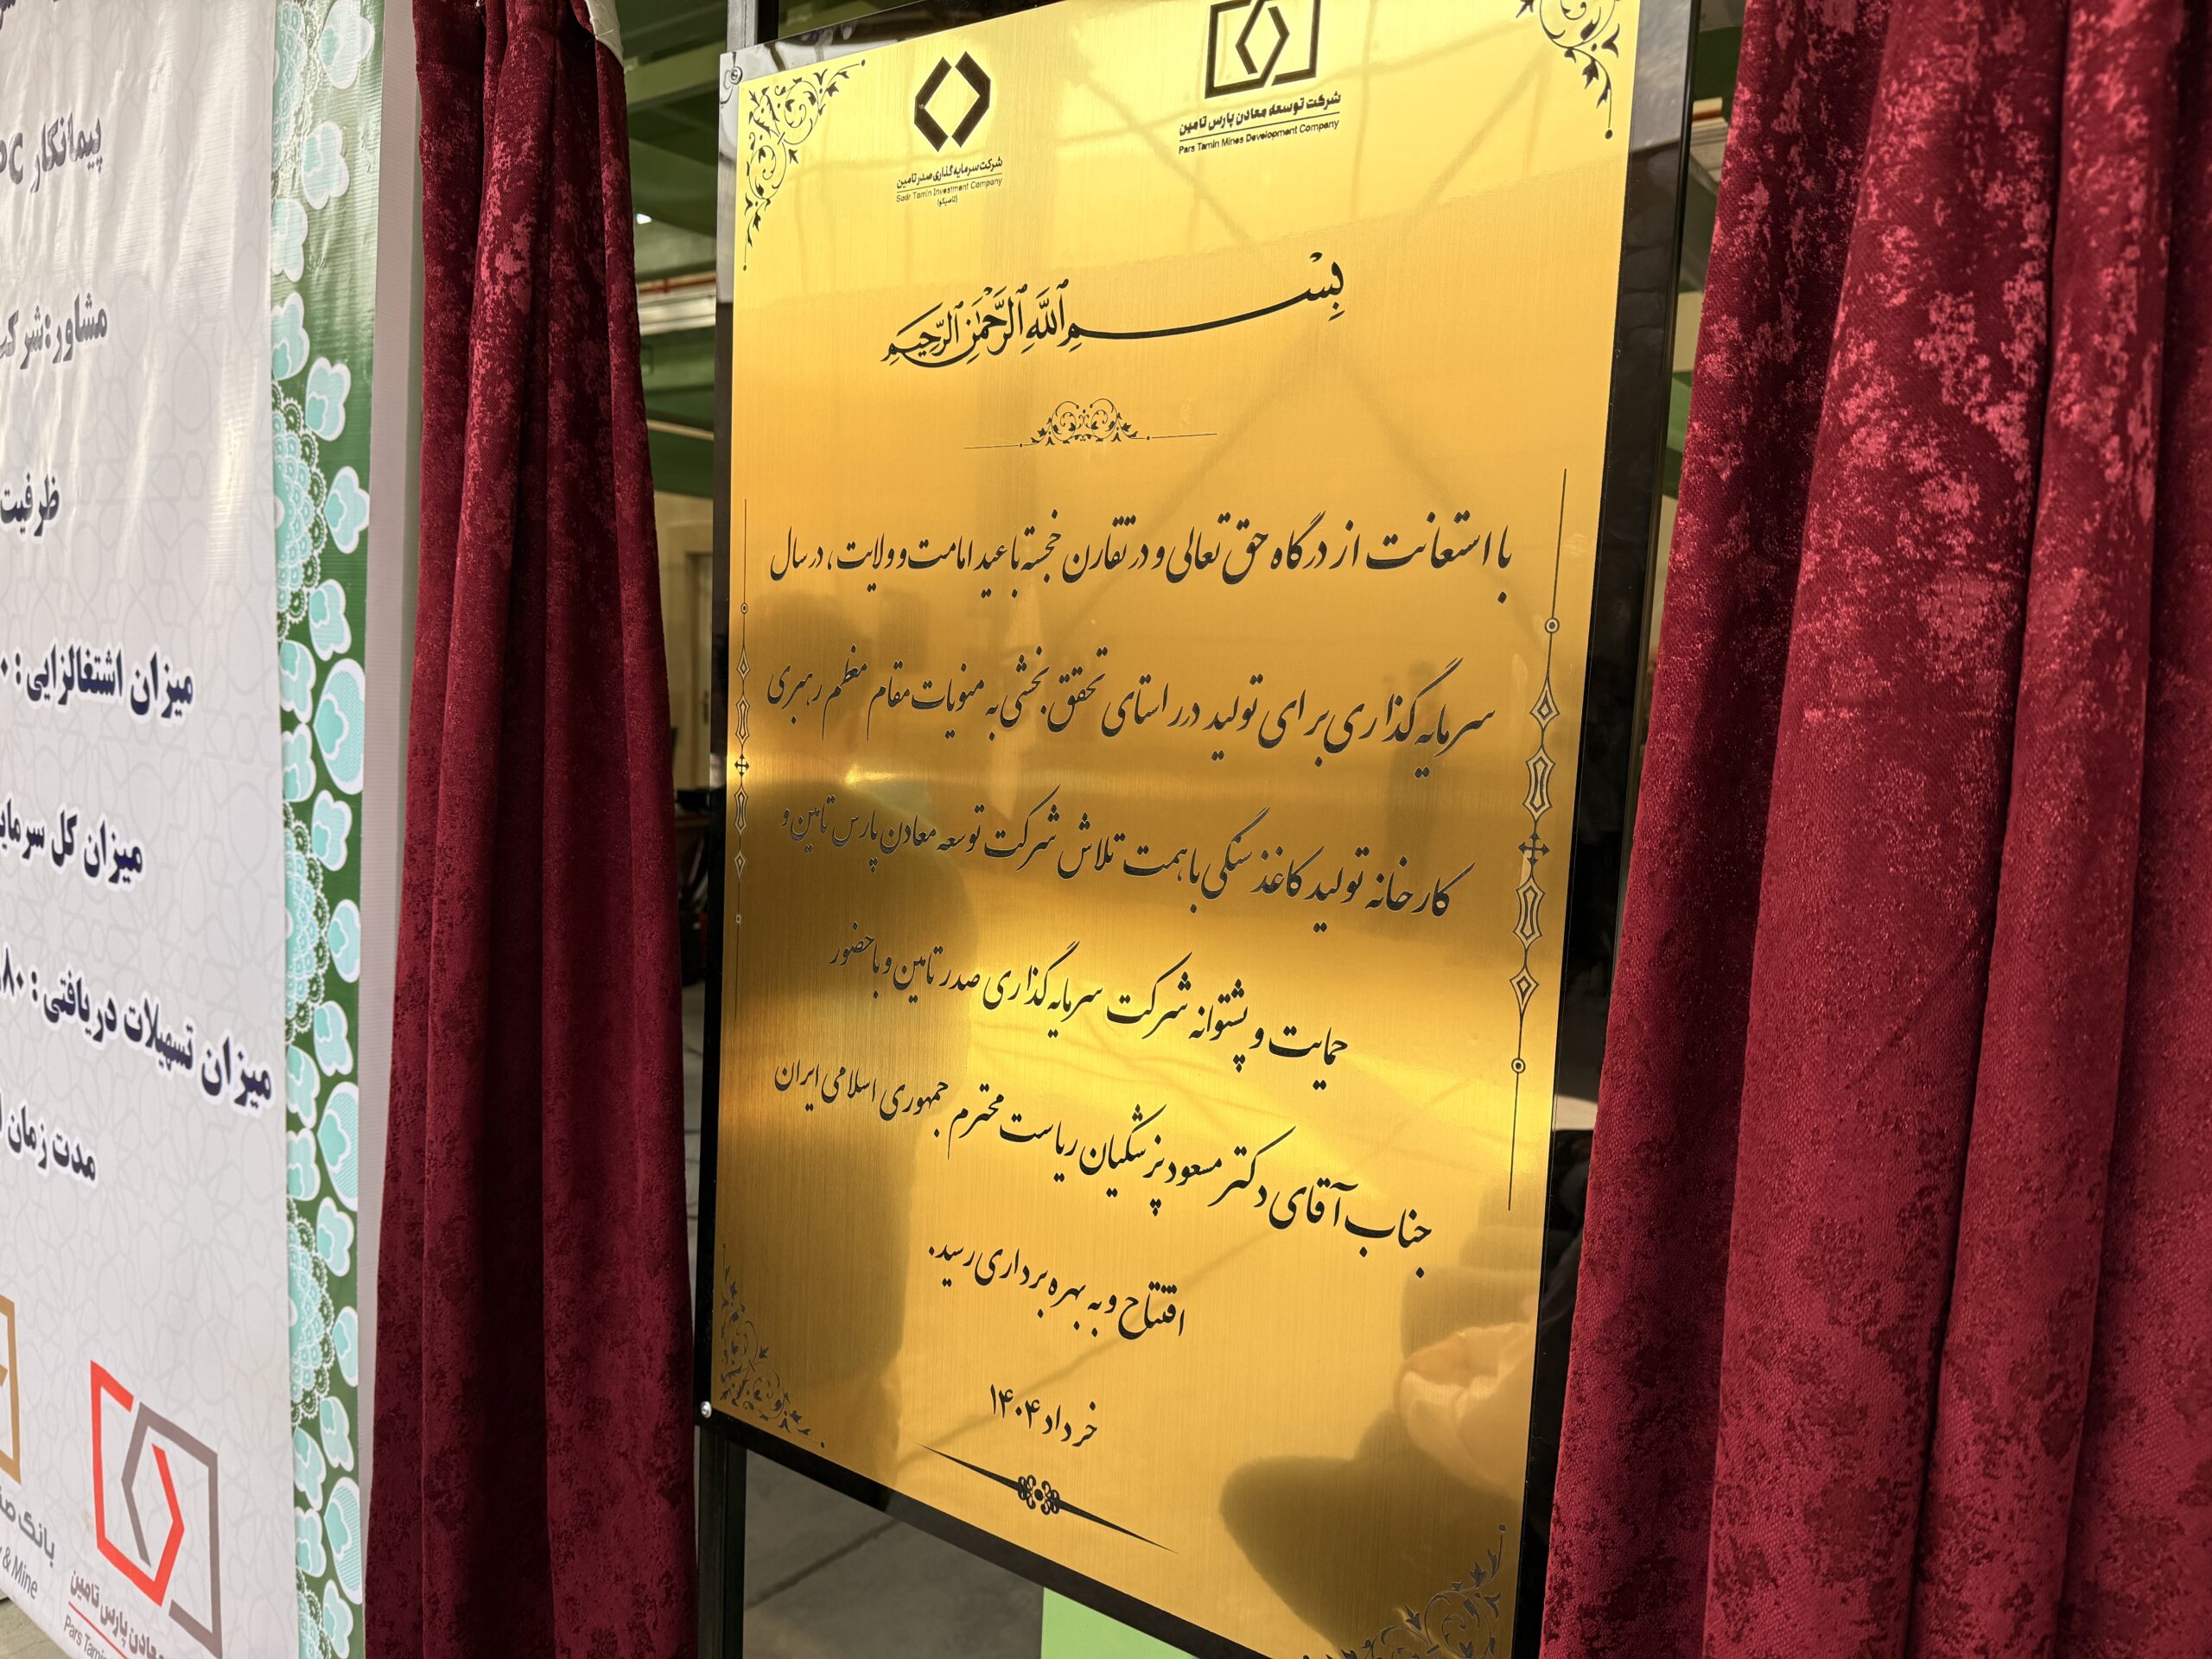 پیمانکار PC
مشاور:شرکت
ظرفیت
میزان اشتغالزایی :
میزان کل
میزان تسهیلات دریافتی :
مدت زمان
بانک
& Mine
معادن پارس تامین
Pars
شرکت سرمایه گذاری صدر تامین
Sadr Tamin Investment Company
(تاصیکو)
شرکت توسعه معادن پارس تامین
Pars Tamin Mines Development Company
بِسْمِ ٱللَّهِ ٱلرَّحْمَٰنِ ٱلرَّحِيمِ
با استعانت از درگاه حق تعالی و در تقارن خجسته با عید امامت و ولایت، در سال
سرمایه گذاری برای تولید در راستای تحقق بخشی به منویات مقام معظم رهبری
کارخانه تولید کاغذ سنگی با همت تلاش شرکت توسعه معادن پارس تامین و
حمایت و پشتوانه شرکت سرمایه گذاری صدر تامین و با حضور
جناب آقای دکتر مسعود پزشکیان ریاست محترم جمهوری اسلامی ایران
افتتاح و به بهره برداری رسید.
خرداد ۱۴۰۴